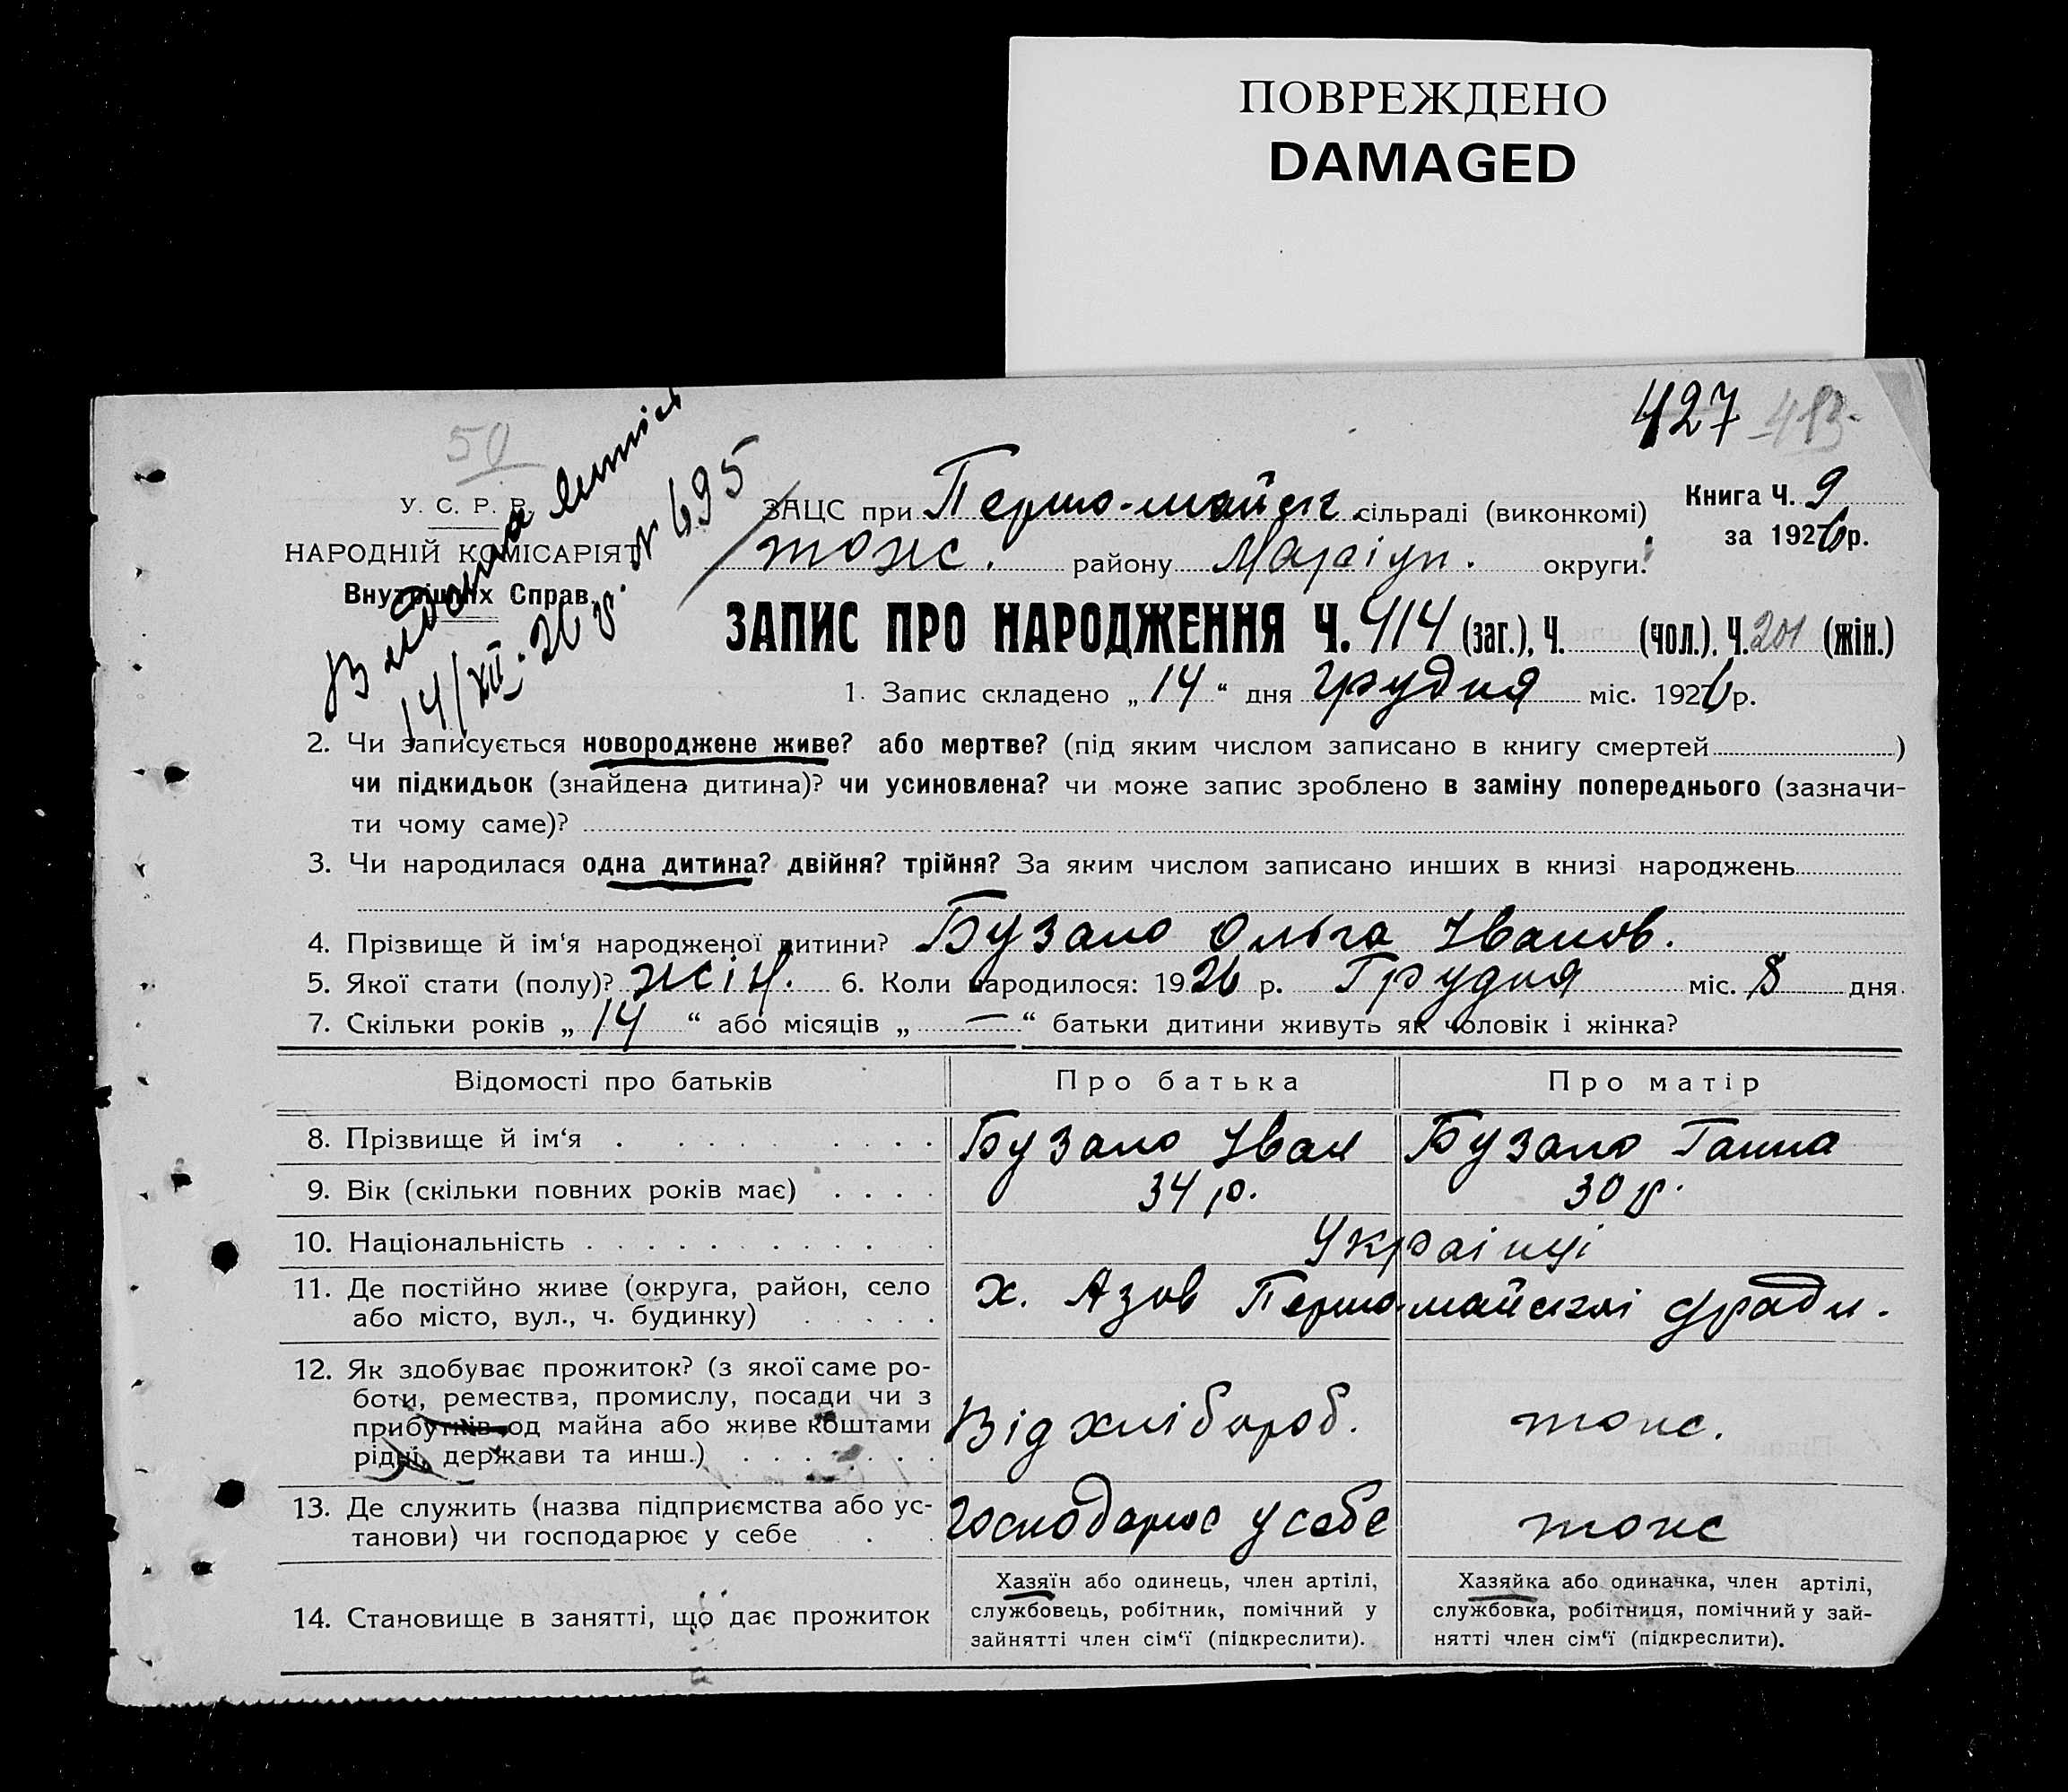 ПОВРЕЖДЕНО
DAMAGED
427 413
50
У. С. Р. Р.
НАРОДНІЙ КОМІСАРІЯТ
Внутрішніх Справ.
Видана
14/XII. 26 р. № 695
ЗАЦС при Першо-майськ сільраді (виконкомі)
тожс. району Маріуп. округи.
Книга Ч. 9
за 1926 р.
ЗАПИС ПРО НАРОДЖЕННЯ Ч. 414 (заг.), Ч. (чол.). Ч. 201 (жін.)
1. Запис складено „ 14 “ дня грудня міс. 1926 р.
2. Чи записується новороджене живе? або мертве? (під яким числом записано в книгу смертей )
чи підкидьок (знайдена дитина)? чи усиновлена? чи може запис зроблено в заміну попереднього (зазначи-
ти чому саме)?
3. Чи народилася одна дитина? двійня? трійня? За яким числом записано инших в книзі народжень
4. Прізвище й ім‘я народженої дитини? Бузало Ольга Іванов.
5. Якої стати (полу)? жін. 6. Коли народилося: 1926 р. Грудня міс. 8 дня.
7. Скільки років „ 14 “ або місяців „ — “ батьки дитини живуть як чоловік і жінка?
Відомості про батьків Про батька Про матір
8. Прізвище й ім‘я Бузало Іван Бузало Ганна
9. Вік (скільки повних років має) 34 р. 30 р.
10. Національність Українці
11. Де постійно живе (округа, район, село
або місто, вул., ч. будинку)
х. Азов Першо-майської с/ради.
12. Як здобуває прожиток? (з якої саме ро-
боти, ремества, промислу, посади чи з
прибутків од майна або живе коштами
рідні, держави та инш.)
Від хлібороб. тожс.
13. Де служить (назва підприємства або ус-
танови) чи господарює у себе
Господарює у себе тожс
14. Становище в занятті, що дає прожиток
Хазяїн або одинець, член артілі,
службовець, робітник, помічний у
зайнятті член сім‘ї (підкреслити).
Хазяйка або одиначка, член артілі,
службовка, робітниця, помічний у зай-
нятті член сім‘ї (підкреслити).